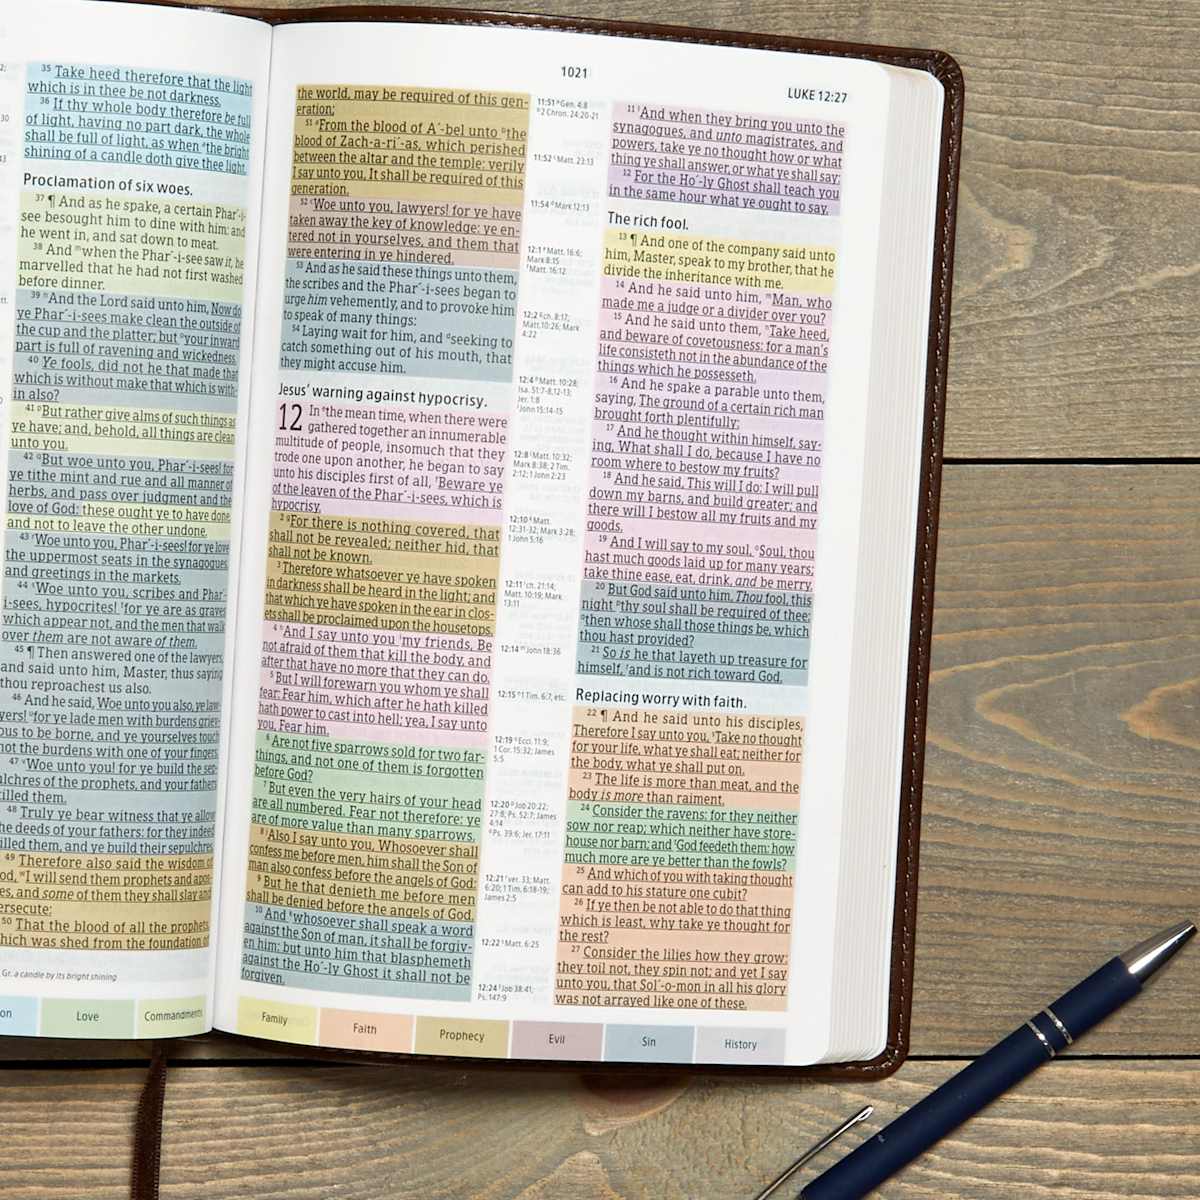 35 Take heed therefore that the light
which is in thee be not darkness.
36 If thy whole body therefore be full
of light, having no part dark, the whole
shall be full of light, as when the bright
shining of a candle doth give thee light.
Proclamation of six woes.
37 ¶ And as he spake, a certain Phar´-i-
see besought him to dine with him: and
he went in, and sat down to meat.
38 And m when the Phar´-i-see saw it, he
marvelled that he had not first washed
before dinner.
39 n And the Lord said unto him, Now do
ye Phar´-i-sees make clean the outside of
the cup and the platter; but o your inward
part is full of ravening and wickedness.
40 Ye fools, did not he that made that
which is without make that which is with-
in also?
41 p But rather give alms of such things as
ye have; and, behold, all things are clean
unto you.
42 q But woe unto you, Phar´-i-sees! for
ye tithe mint and rue and all manner of
herbs, and pass over judgment and the
love of God: these ought ye to have done,
and not to leave the other undone.
43 r Woe unto you, Phar´-i-sees! for ye love
the uppermost seats in the synagogues,
and greetings in the markets.
44 s Woe unto you, scribes and Phar´-
i-sees, hypocrites! t for ye are as graves
which appear not, and the men that walk
over them are not aware of them.
45 ¶ Then answered one of the lawyers,
and said unto him, Master, thus saying
thou reproachest us also.
46 And he said, Woe unto you also, ye law-
yers! u for ye lade men with burdens griev-
ous to be borne, and ye yourselves touch
not the burdens with one of your fingers.
47 v Woe unto you! for ye build the sep-
ulchres of the prophets, and your fathers
killed them.
48 Truly ye bear witness that ye allow
the deeds of your fathers: for they indeed
killed them, and ye build their sepulchres.
49 Therefore also said the wisdom of
God, w I will send them prophets and apos-
es, and some of them they shall slay and
ersecute:
50 That the blood of all the prophets,
which was shed from the foundation of
Gr. a candle by its bright shining
on Love Commandments
1021
LUKE 12:27
the world, may be required of this gen-
eration;
51 a From the blood of A´-bel unto b the
blood of Zach-a-ri´-as, which perished
between the altar and the temple: verily
I say unto you, It shall be required of this
generation.
52 c Woe unto you, lawyers! for ye have
taken away the key of knowledge: ye en-
tered not in yourselves, and them that
were entering in ye hindered.
53 And as he said these things unto them,
the scribes and the Phar´-i-sees began to
urge him vehemently, and to provoke him
to speak of many things:
54 Laying wait for him, and d seeking to
catch something out of his mouth, that
they might accuse him.
Jesus' warning against hypocrisy.
12 In e the mean time, when there were
gathered together an innumerable
multitude of people, insomuch that they
trode one upon another, he began to say
unto his disciples first of all, f Beware ye
of the leaven of the Phar´-i-sees, which is
hypocrisy.
2 g For there is nothing covered, that
shall not be revealed; neither hid, that
shall not be known.
3 Therefore whatsoever ye have spoken
in darkness shall be heard in the light; and
that which ye have spoken in the ear in clos-
ets shall be proclaimed upon the housetops.
4 h And I say unto you i my friends, Be
not afraid of them that kill the body, and
after that have no more that they can do.
5 But I will forewarn you whom ye shall
fear: Fear him, which after he hath killed
hath power to cast into hell; yea, I say unto
you, Fear him.
6 Are not five sparrows sold for two far-
things, and not one of them is forgotten
before God?
7 But even the very hairs of your head
are all numbered. Fear not therefore: ye
are of more value than many sparrows.
8 j Also I say unto you, Whosoever shall
confess me before men, him shall the Son of
man also confess before the angels of God:
9 But he that denieth me before men
shall be denied before the angels of God.
10 And k whosoever shall speak a word
against the Son of man, it shall be forgiv-
en him: but unto him that blasphemeth
against the Ho´-ly Ghost it shall not be
forgiven.
11:51 a Gen. 4:8
b 2 Chron. 24:20-21
11:52 c Matt. 23:13
11:54 d Mark 12:13
12:1 e Matt. 16:6;
Mark 8:15
f Matt. 16:12
12:2 g ch. 8:17;
Matt.10:26; Mark
4:22
12:4 h Matt. 10:28;
Isa. 51:7-8,12-13;
Jer. 1:8
i John 15:14-15
12:8 j Matt. 10:32;
Mark 8:38; 2 Tim.
2:12; 1 John 2:23
12:10 k Matt.
12:31-32; Mark 3:28;
1 John 5:16
12:11 l ch. 21:14;
Matt. 10:19; Mark
13:11
12:14 m John 18:36
12:15 n 1 Tim. 6:7, etc.
12:19 o Eccl. 11:9;
1 Cor. 15:32; James
5:5
12:20 p Job 20:22;
27:8; Ps. 52:7; James
4:14
q Ps. 39:6; Jer. 17:11
12:21 r ver. 33; Matt.
6:20; 1 Tim. 6:18-19;
James 2:5
12:22 s Matt. 6:25
12:24 t Job 38:41;
Ps. 147:9
11 l And when they bring you unto the
synagogues, and unto magistrates, and
powers, take ye no thought how or what
thing ye shall answer, or what ye shall say:
12 For the Ho´-ly Ghost shall teach you
in the same hour what ye ought to say.
The rich fool.
13 ¶ And one of the company said unto
him, Master, speak to my brother, that he
divide the inheritance with me.
14 And he said unto him, m Man, who
made me a judge or a divider over you?
15 And he said unto them, n Take heed,
and beware of covetousness: for a man's
life consisteth not in the abundance of the
things which he possesseth.
16 And he spake a parable unto them,
saying, The ground of a certain rich man
brought forth plentifully:
17 And he thought within himself, say-
ing, What shall I do, because I have no
room where to bestow my fruits?
18 And he said, This will I do: I will pull
down my barns, and build greater; and
there will I bestow all my fruits and my
goods.
19 And I will say to my soul, o Soul, thou
hast much goods laid up for many years;
take thine ease, eat, drink, and be merry.
20 But God said unto him, Thou fool, this
night p thy soul shall be required of thee:
q then whose shall those things be, which
thou hast provided?
21 So is he that layeth up treasure for
himself, r and is not rich toward God.
Replacing worry with faith.
22 ¶ And he said unto his disciples,
Therefore I say unto you, s Take no thought
for your life, what ye shall eat; neither for
the body, what ye shall put on.
23 The life is more than meat, and the
body is more than raiment.
24 Consider the ravens: for they neither
sow nor reap; which neither have store-
house nor barn; and t God feedeth them: how
much more are ye better than the fowls?
25 And which of you with taking thought
can add to his stature one cubit?
26 If ye then be not able to do that thing
which is least, why take ye thought for
the rest?
27 Consider the lilies how they grow:
they toil not, they spin not; and yet I say
unto you, that Sol´-o-mon in all his glory
was not arrayed like one of these.
Family Faith Prophecy Evil Sin History